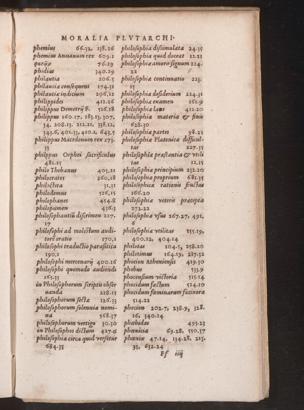 MORALIA PLVTARCHI.
phemius 66.32, 138.26
phemion Amianum rex 609.2
76.29
phidias 340.29
philautia 206.5
philautiæ consequens 174.31
philautiæ indicium 206.12
philippides 412.26
philippus Demetrij F. 126.18
philippus 160.17, 183.13, 307.
philippus Macedonum rex 275.
35
philippus Orphei sacrificulus
481.15
philo Thebanus 403.21
philocrates 360.28
philoctetes 31.31
philodemus 326.15
philophanes 454.8
philopœmen 436.3
philosophantiũ discrimen 227.
17
philosophi ad molestum audi-
tore oratio 170.1
philosophi traductio parasitica
190.1
philosophi mercenarij 400.16
philosophi quomodo audiendi
165.13
in Philosophorum scriptis obser
uanda 218.15
philosophorum secta 126.33
philosophorum solennia nomi-
na 568.37
philosophorum vertigo 30.30
in Philosophos dictum 427.6
philosophia circa quid versetur
684.35
philosophia dissimulata 24.35
philosophia quid doceat 12.21
philosophiæ amoris signum 224.
22
philosophiæ continuatio 223.
15
philosophiæ desiderium 224.31
philosophiæ examen 161.9
philosophiæ laus 412.20
philosophiæ materia & finis
628.30
philosophiæ partes 98.23
philosophiæ Platonicæ difficul-
tas 227.35
philosophiæ præstantia & vtili
tas 12.15
philosophiæ principium 252.20
philosophiæ proprium 681.35
philosophicæ rationis fructus
166.20
philosophiæ veteris præcepta
272.22
philosophiæ vsus 267.27, 492.
6
philosophiæ vtilitas 155.19,
400.12, 404.14
philotas 104.5, 258.20
philotimus 164.19, 287.32
phocion Atheniensis 419.30
phœbus 533.9
phocensium victoria 515.14
phocidum sectum 514.10
phocidum fœminarum facinora
514.22
phocion 202.7, 238.9, 328.
16, 340.14
phœbidas 495.23
phœnissa 69.28, 550.37
phœnix 47.14, 134.28, 213.
35, 632.24
Ff iiij